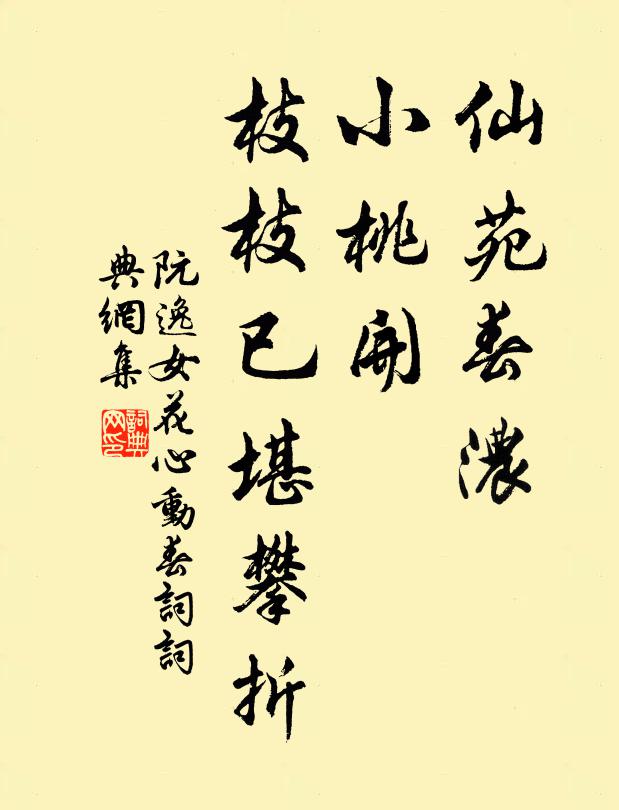 仙苑春濃
小桃開
枝枝已堪攀折
阮逸女花心動春詞詞
典網集
詞典
网印